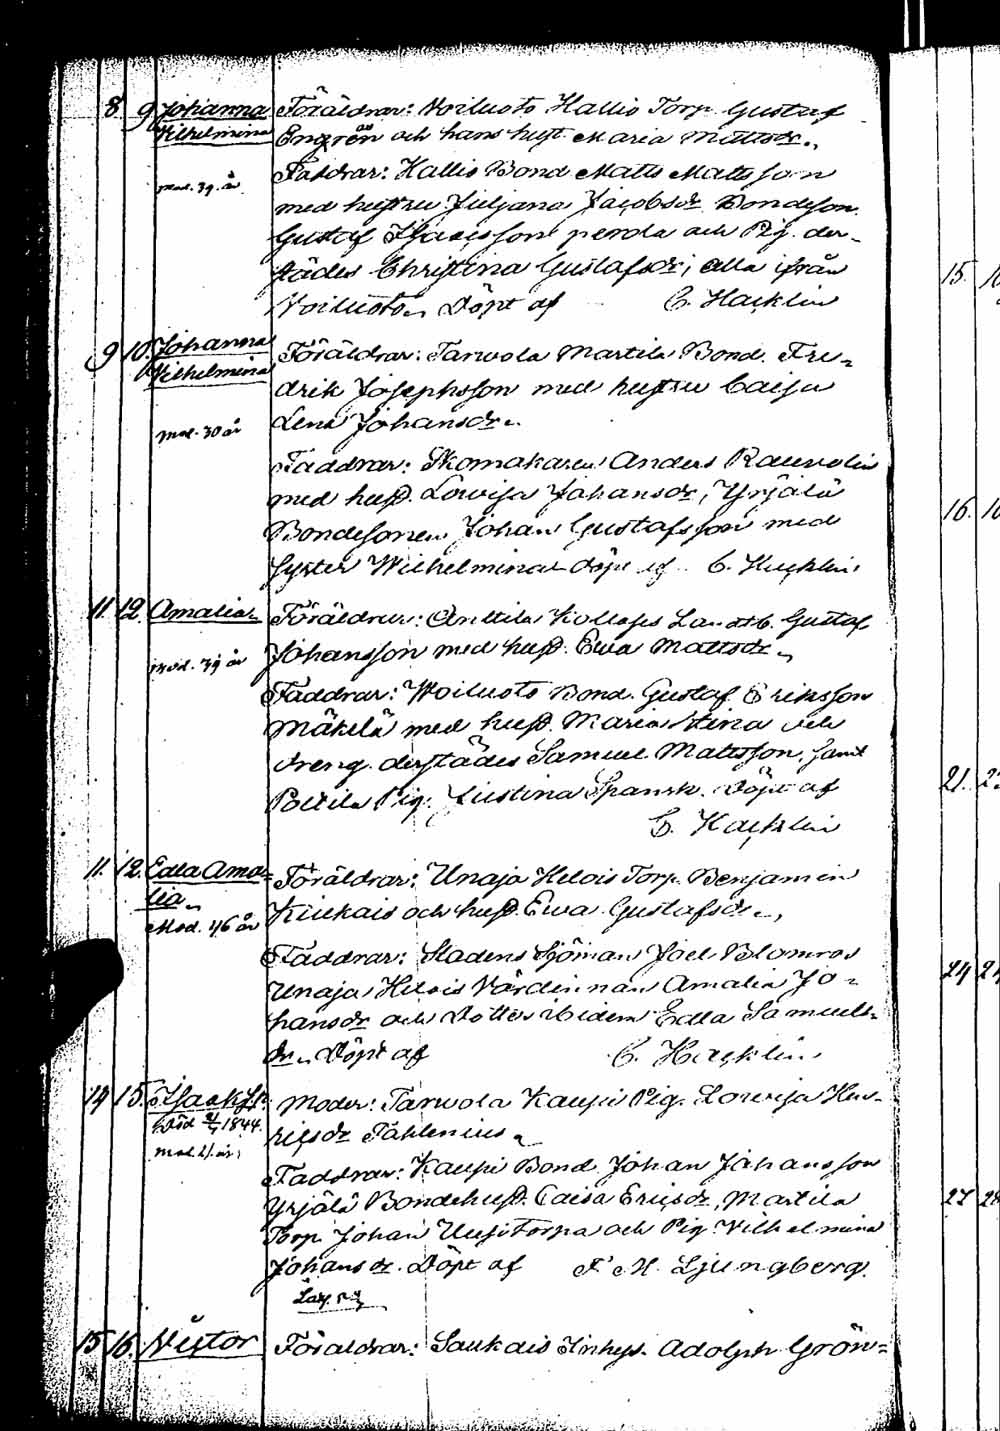 8 9 Johanna Föräldrar: Woiluoto Hallis Torp. Gustaf
Wilhelmina Engrén och hans hust. Maria Mattsdr.
mod. 39. år Faddrar: Hallis Bond Matts Mattsson
med hustru Juljana Jacobsdr Bondeson
Gustaf Isacsson och Pig. der-
städes Christina Gustafsdr; alla ifrån
Woiluoto. Döpt af C. Hacklin
9 10. Johanna Föräldrar: Tarwola Martila Bond. Fre-
Wilhelmina drik Josephsson med hustru Caisa
mod. 30 år Lena Johansdr.
Faddrar: Skomakaren Anders Rauvolin
med hust. Lowisa Johansdr, Yrjälä
Bondesonen Johan Gustafsson med
Syster Wilhelmina Döpt af C. Hacklin
11. 12. Amalia Föräldrar: Anttila Kollaps Landtb. Gustaf
mod. 39 år Johansson med hust. Ewa Mattsdr
Faddrar: Woiluoto Bond. Gustaf Eriksson
Mäkelä med hust. Maria Stina och
dreng. derstädes Samuel Mattsson, samt
Pig. Justina Spansk. Döpt af
C. Hacklin
11. 12. Edla Ama= Föräldrar: Unaja Helois Torp. Benjamin
lia Kiukais och hust. Ewa Gustafsdr.
Mod. 46 år Faddrar: Stadens Sjöman Joel Blomros
Unaja Helois Värdinnan Amalia Jo-
hansdr och Dotter ibidem Edla Samuels-
dr. Döpt af C. Hacklin
14 15. Isaak Moder: Tarwola Kaupi Pig. Lowisa Hen-
död 1844. ricsdr Tahlenius
Faddrar: Kaupi Bond Johan Johansson
Yrjälä Bondehust. Caisa Ericsdr, Martila
Torp. Johan Uusitorpa och Pig. Vilhelmina
Johansdr. Döpt af F. M. Ljungberg.
15 16. Victor Föräldrar: Saukais Inhys. Adolph Grön=
15. 16
16. 16
21. 2
24 2
27 28